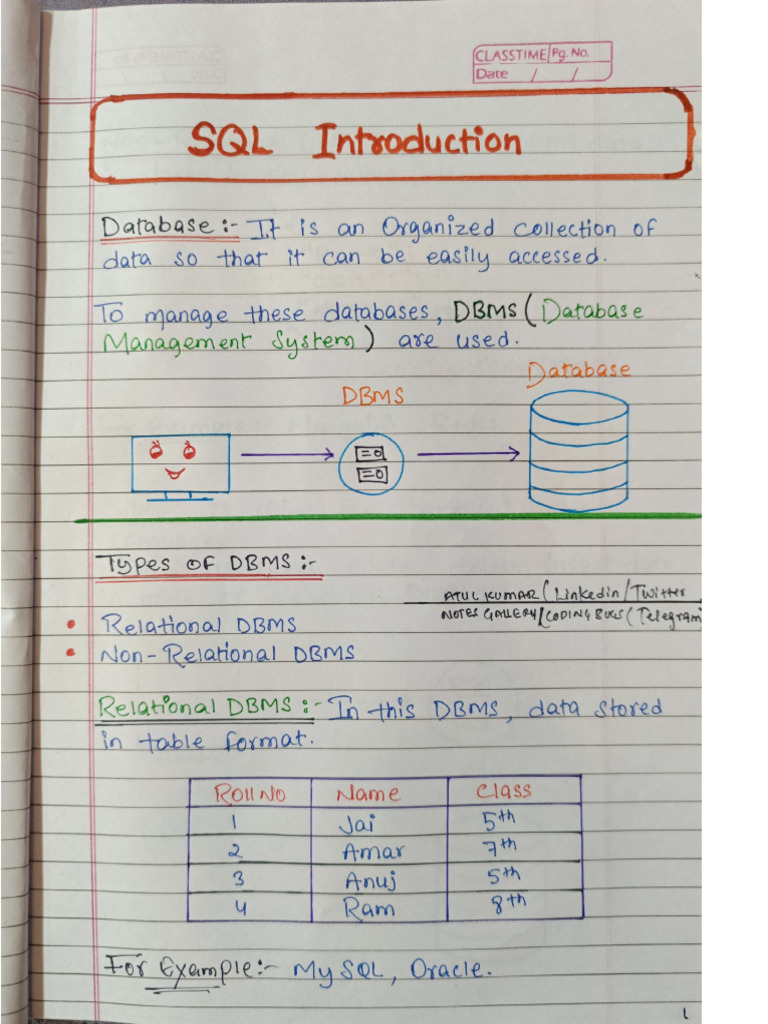 CLASSTIME Pg. No.
Date / /
SQL Introduction
Database :- It is an Organized collection of
data so that it can be easily accessed.
To manage these databases, DBMS (Database
Management System) are used.
Database
DBMS
Types of DBMS :-
ATUL KUMAR (Linkedin/Twitter
NOTES GALLERY/CODING BUGS (Telegram)
• Relational DBMS
• Non-Relational DBMS
Relational DBMS :- In this DBMS, data stored
in table format.
Roll No Name Class
1 Jai 5th
2 Amar 7th
3 Anuj 5th
4 Ram 8th
For Example :- MySQL, Oracle.
1